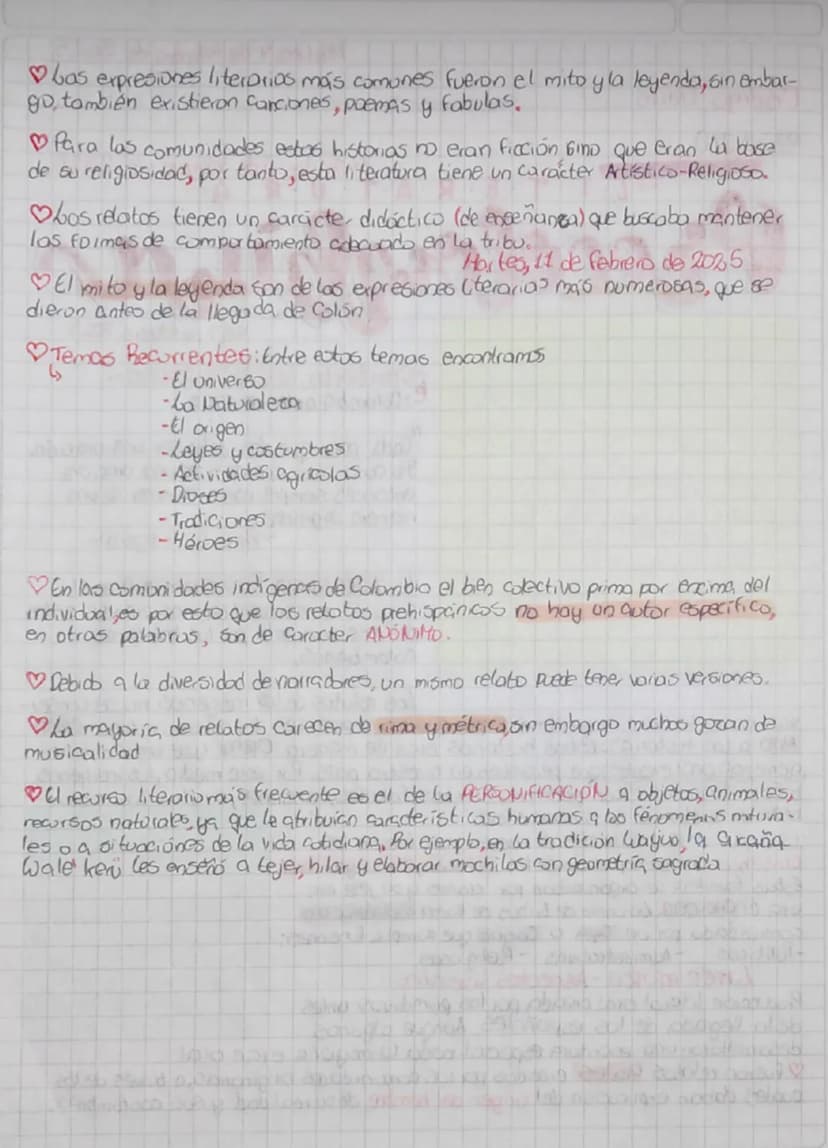 ♡ Las expresiones literarias más comunes fueron el mito y la leyenda, sin embar-
go, también existieron canciones, poemas y fabulas.
♡ Para las comunidades estas historias no eran ficción sino que eran la base
de su religiosidad, por tanto, esta literatura tiene un carácter Artístico-Religioso.
♡ Los relatos tienen un carácter didáctico (de enseñanza) que buscaba mantener
las formas de comportamiento adecuado en la tribu.
Martes, 11 de febrero de 2025
♡ El mito y la leyenda son de las expresiones literarias más numerosas, que se
dieron antes de la llegada de Colón
♡ Temas Recurrentes: Entre estos temas encontramos
↳
- El universo
- La Naturaleza
- El origen
- Leyes y costumbres
- Actividades agrícolas
- Dioses
- Tradiciones
- Héroes
♡ En las comunidades indígenas de Colombia el bien colectivo prima por encima del
individual, es por esto que los relatos prehispánicos no hay un autor específico,
en otras palabras, son de caracter ANÓNIMO.
♡ Debido a la diversidad de narradores, un mismo relato puede tener varias versiones.
♡ La mayoría de relatos carecen de rima y métrica, sin embargo muchos gozan de
musicalidad
♡ El recurso literario más frecuente es el de la PERSONIFICACIÓN a objetos, animales,
recursos naturales, ya que le atribuían características humanas a los fenómenos natura-
les o a situaciónes de la vida cotidiana. Por ejemplo, en la tradición Wayuu, la araña
Wale' kerü les enseñó a tejer, hilar y elaborar mochilas con geometría sagrada